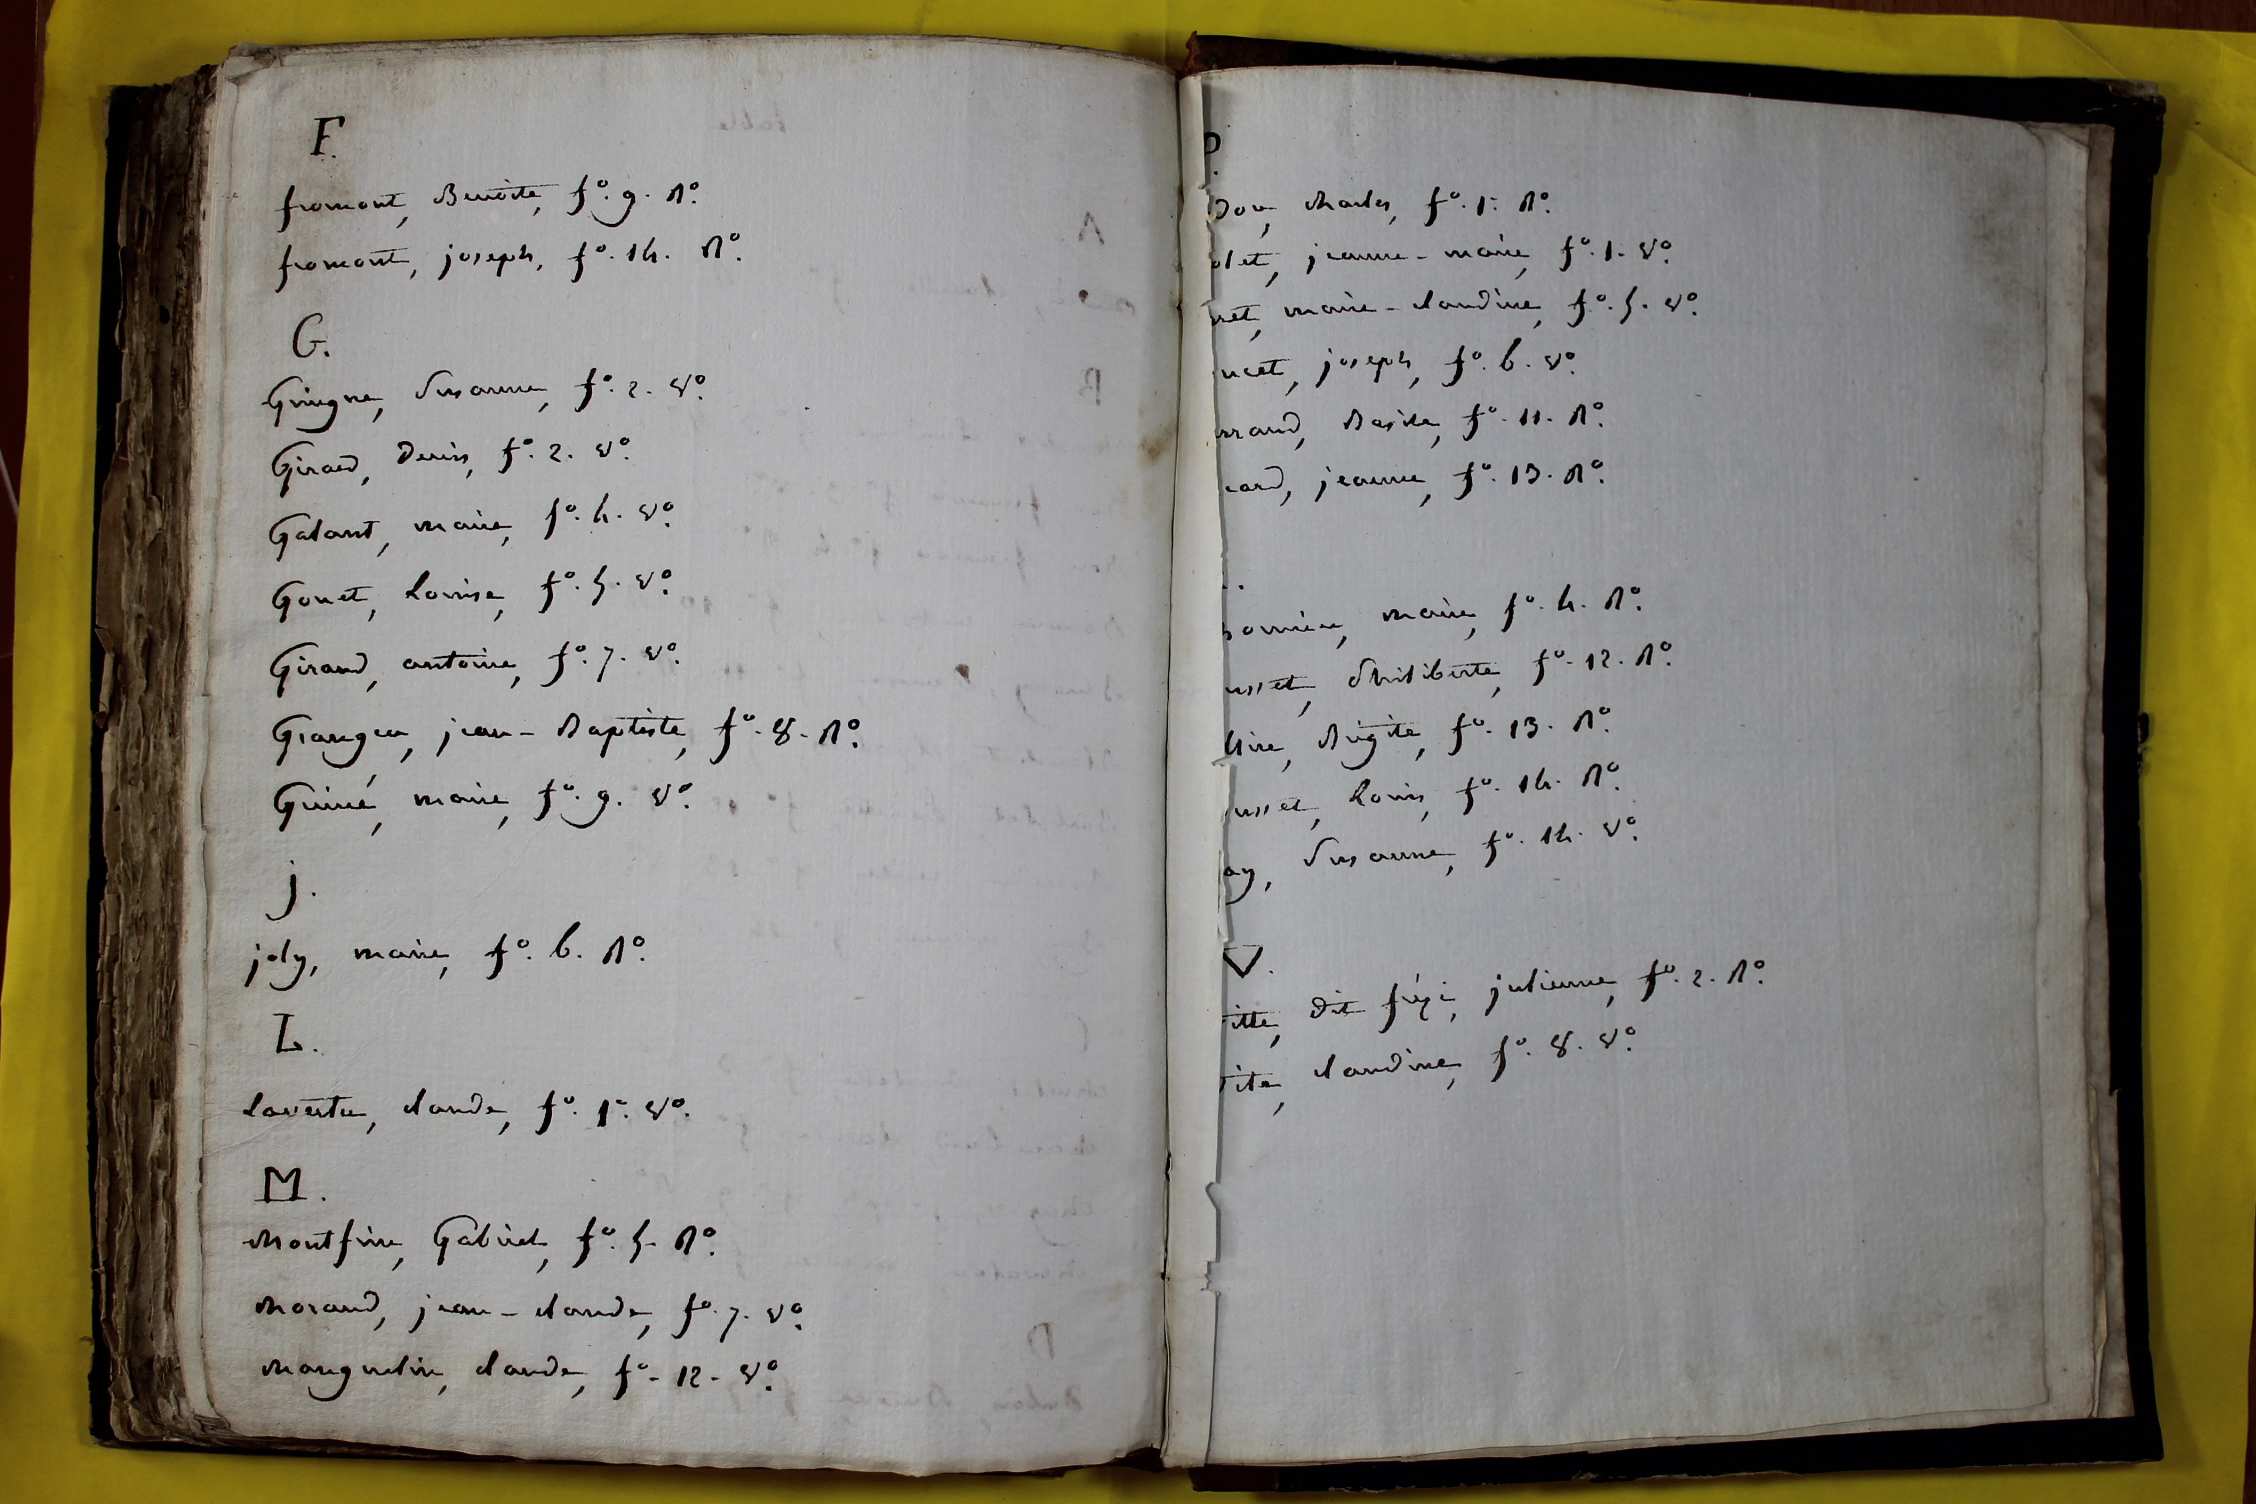 F.
fromont, Benoite, fº. 9. Rº.
fromont, joseph, fº. 14. Rº.
G.
Gringne, Susanne, fº. 2. Vº.
Giraud, Denis, fº. 2. Vº.
Galant, marie, fº. 4. Vº.
Gouet, Louise, fº. 5. Vº.
Giraud, antoine, fº. 7. Vº.
Granger, jean-Baptiste, fº. 8. Rº.
Guiné, marie, fº. 9. Vº.
j.
joly, marie, fº. 6. Rº.
L.
Lavertu, claude, fº. 1r. Vº.
M.
Montfrin, Gabriel, fº. 5. Rº.
Morand, jean-claude, fº. 7. Vº.
Manguelin, claude, fº. 12. Vº.
P.
don, charles, fº. 1r. Rº.
olet, jeanne-marie, fº. 1. Vº.
ret, marie-claudine, fº. 5. Vº.
ucet, joseph, fº. 6. Vº.
rraud, Basile, fº. 11. Rº.
card, jeanne, fº. 13. Rº.
bonnière, marie, fº. 4. Rº.
usset, Philiberte, fº. 12. Rº.
llire, Brigite, fº. 13. Rº.
usset, Louis, fº. 14. Rº.
ay, Susanne, fº. 14. Vº.
V.
itte, dit julienne, fº. 2. Rº.
ite, claudine, fº. 8. Vº.